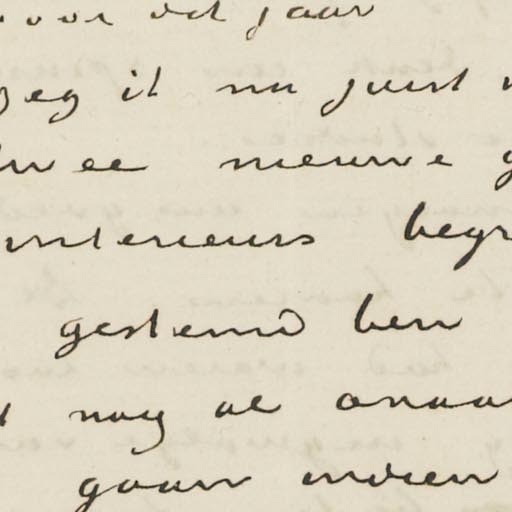 voor dit jaar
zeg ik nu juist
twee nieuwe
interieurs begr
gestemd ben
nog al onaan
gaan indien